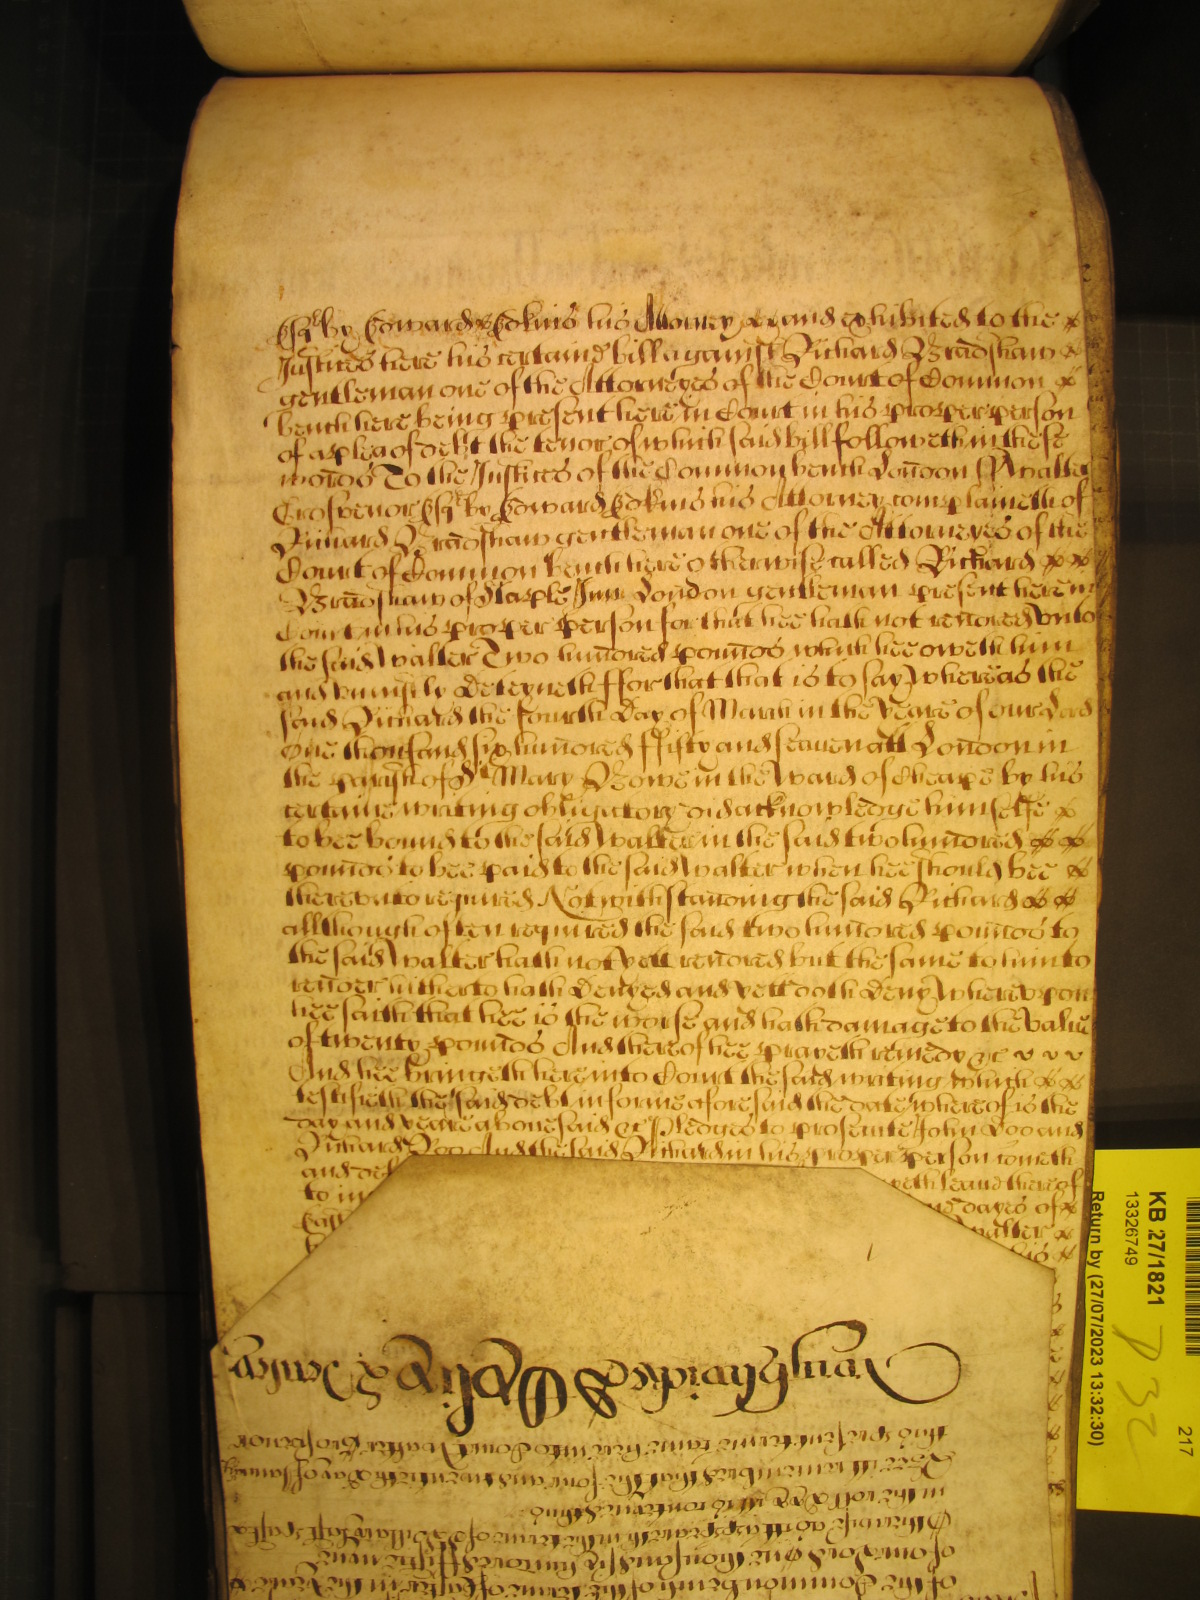 Esqr by Edward Edkins his Attorney &c and exhibited to the
Justices here his certaine bill against Richard Bradshaw
gentleman one of the Attorneyes of the Court of Common
bench here being present here in Court in his proper person
of a plea of debt the tenor of which said bill followeth in these
words To the Justices of the Common bench London ss Walter
Grosvenor Esqr by Edward Edkins his Attorney complaineth of
Richard Bradshaw gentleman one of the Attorneyes of the
Court of Common bench here otherwise called Richard
Bradshaw of Staple Inne London gentleman present here in
Court in his proper person for that hee hath not rendred unto
the said Walter Two hundred pounds which hee oweth him
and uniustly deteyneth ffor that that is to say whereas the
said Richard the fourth day of March in the yeare of our Lord
One thousand six hundred ffifty and seaven att London in
the parish of St Mary Bowe in the Ward of Cheape by his
certaine writing obligatory did acknowledge himselfe
to bee bound to the said Walter in the said two hundred
pounds to bee paid to the said Walter when hee should bee
thereunto required Notwithstanding the said Richard
allthough often required the said two hundred pounds to
the said Walter hath not yett rendred but the same to him to
render hitherto hath denyed and yett doth deny Whereupon
hee saith that hee is the worse and hath damage to the value
of twenty pounds And thereof hee prayeth remedy &c
And hee bringeth here into Court the said writing which
testifieth the said debt in forme aforesaid the date whereof is the
day and yeare abovesaid &c Pledges to prosecute John Doo and
Richard Roo And the said Richard in his proper person cometh
and def peth leave thereof
to im dayes of
East Walter
his
of the Common bench of the terme of Easter in the yeare
of our Lord One thousand six hundred ffifty nine
Otherwise as itt appeareth in the terme of St Hillary last past
in the roll conteined thus
Bee itt remembred that the foure and twentieth day of January
this present terme came here into Court Walter Grosvenor
KB 27/1821
13326749
Return by (27/07/2023 13:32:30)
217